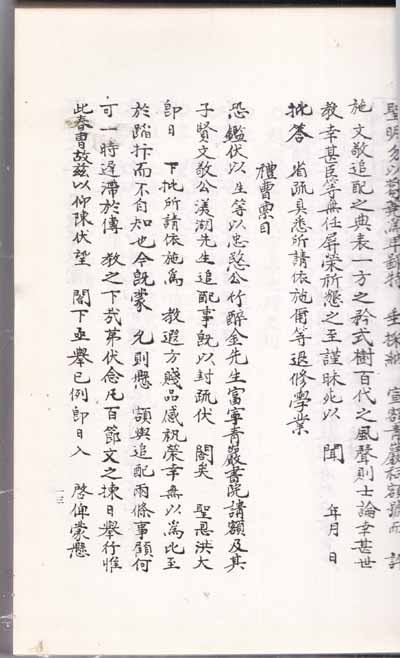 聖明勿以芻蕘爲卑 特 垂採納 宣額青巖 許
施 文敬追配之典表一方之矜式樹百代之風聲則士論幸甚世
教幸甚臣等無任屛榮祈懇之至謹昧死以 聞 年月 日
批答 省疏具悉所請依施爾等退修學業
禮曹稟目
恐鑑伏以生等以忠愍公竹醉金先生富寧靑巖書院請額及其
子賢文敬公漢湖先生追配事旣以封疏伏 閤矣 聖恩洪大
卽日 下批所請依施爲 敎遐方賤品感祝榮幸無以爲比至
於蹈抃而不自知也今旣蒙 允則懸 額與追配兩條事顧何
可一時遲滯於傳 敎之下哉第伏念凡百節文之揀日擧行惟
此春曹故玆以仰陳伏望 閤下亟擧已例卽日入 啓俾蒙懸
一三